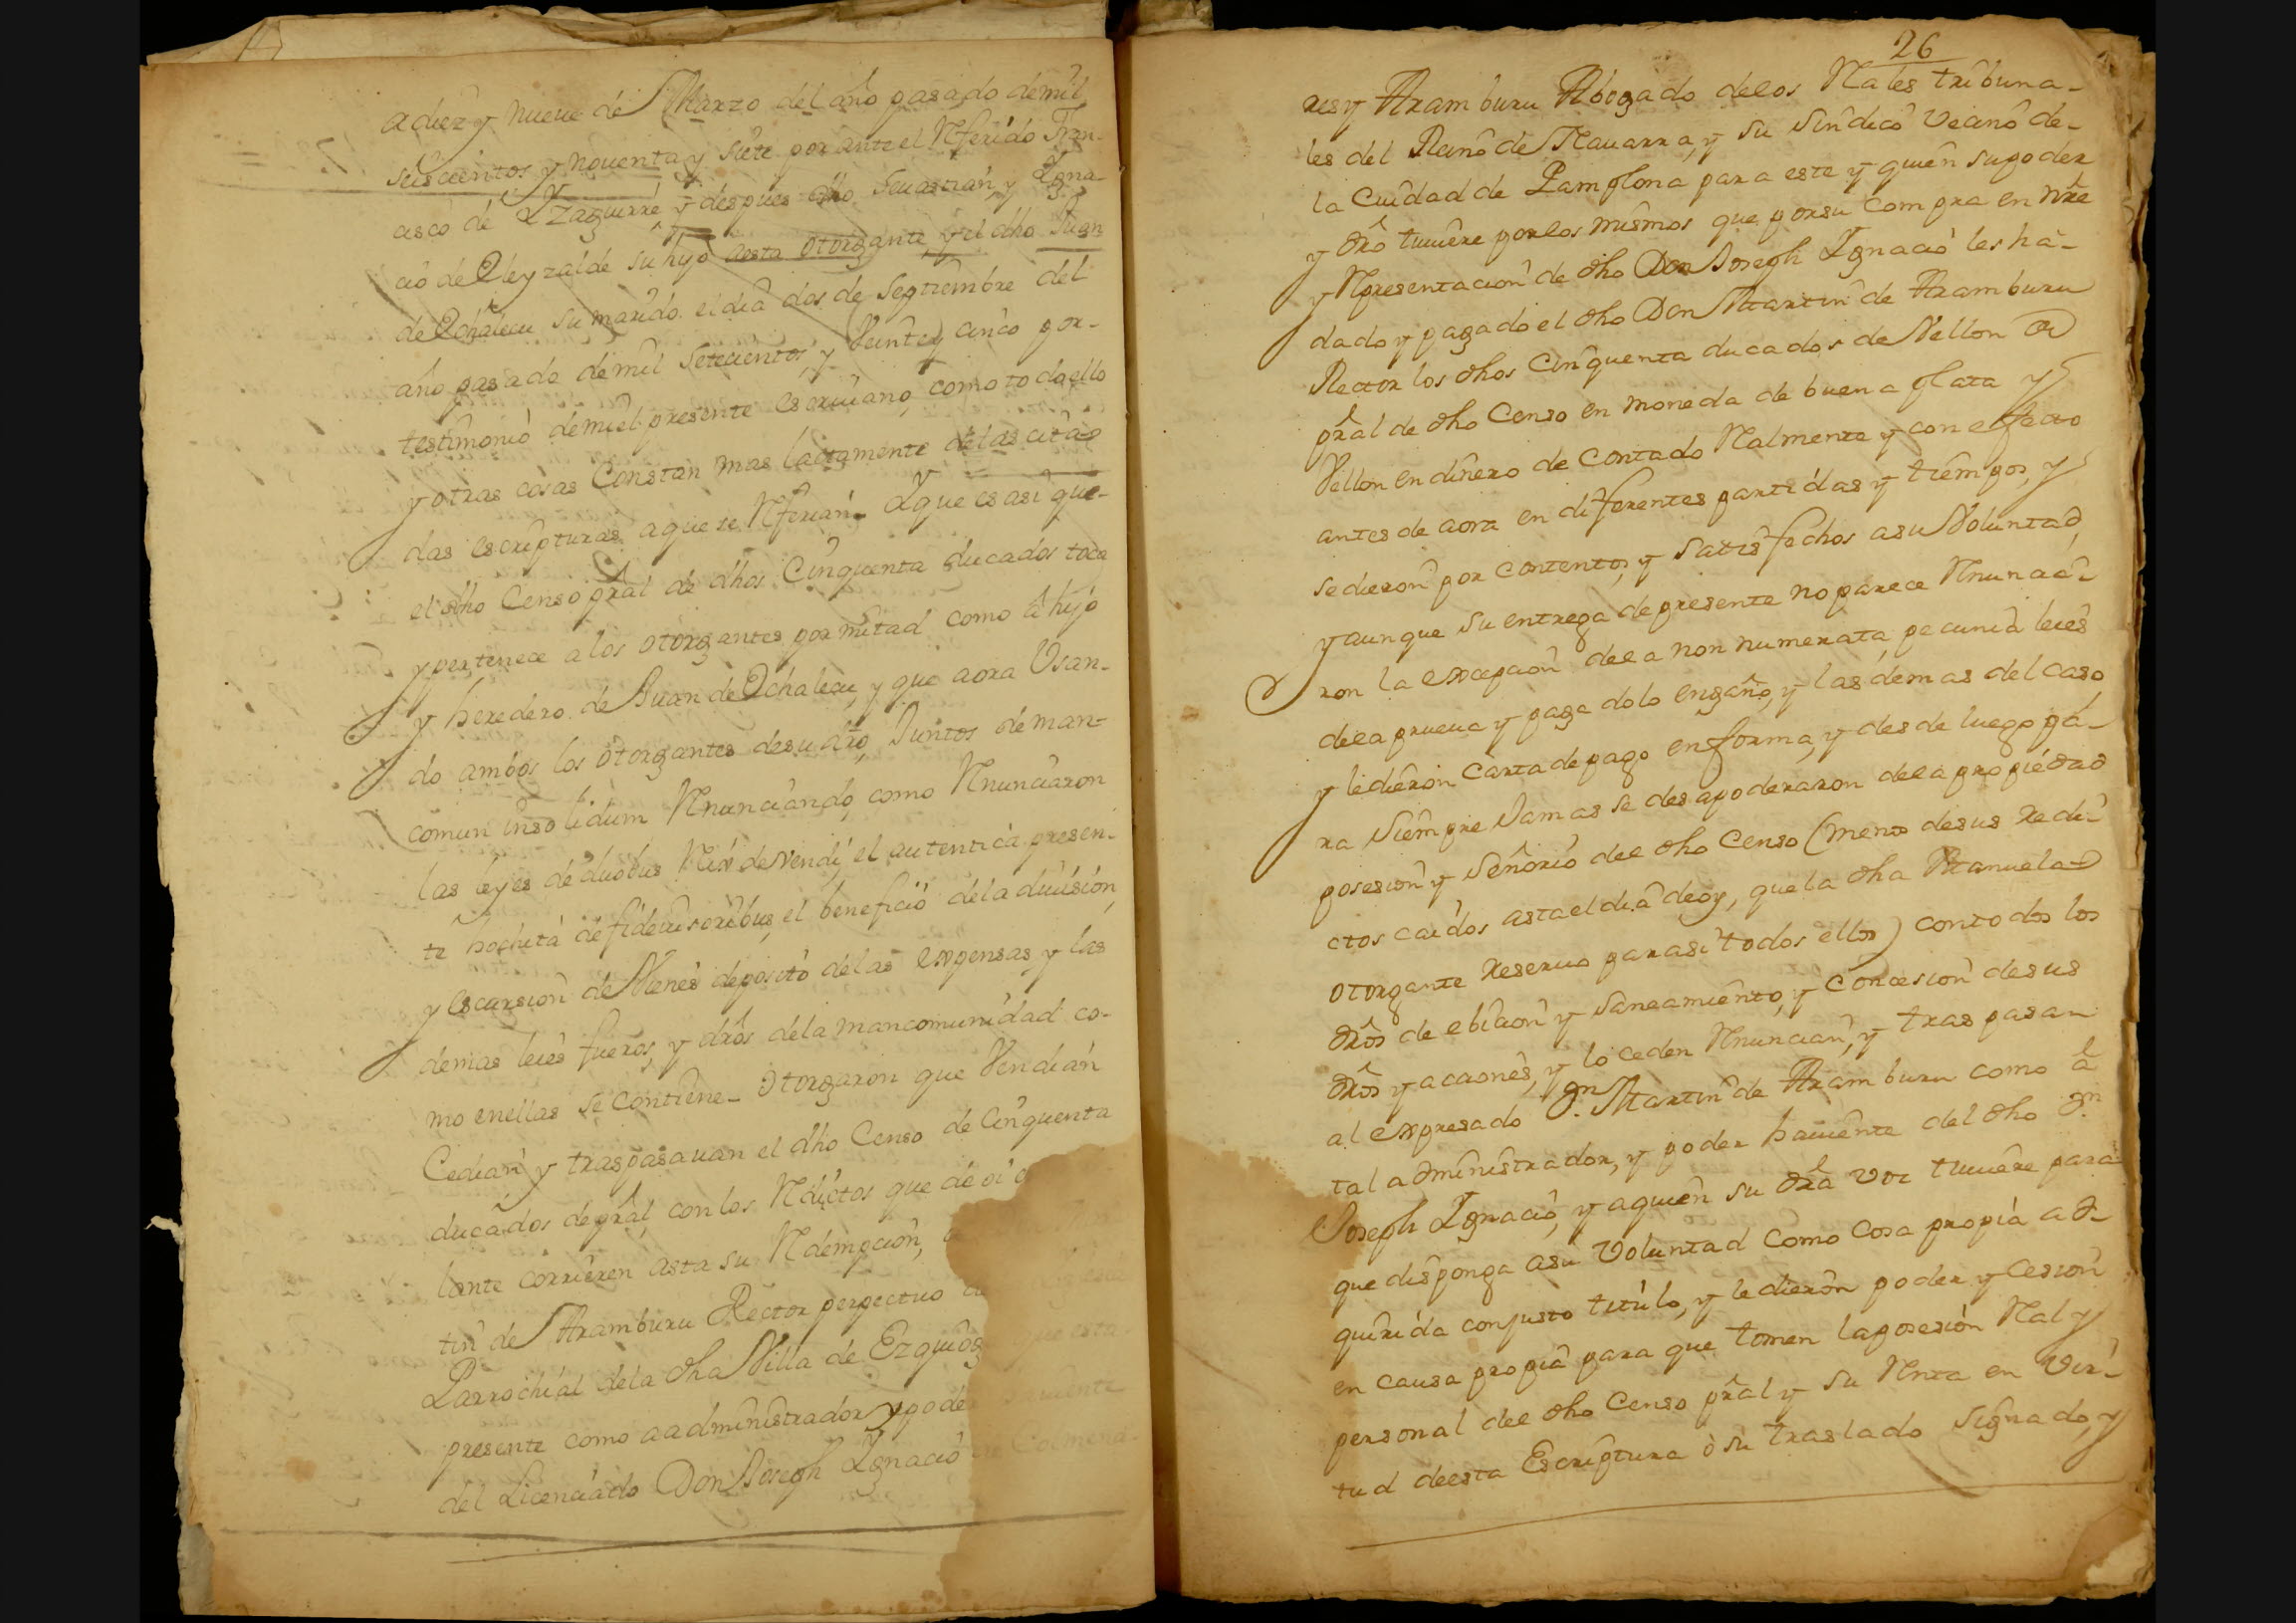 a diez y nueue de Marzo del año pasado de mil
seiscientos y nouenta y siete por ante el Rferido Fran-
cisco de Yzaguirre y despues dho Seuastian, y Igna-
cio de Oleyzalde su hijo aesta otorgante, y el dho Juan
de Ochalecu su marido el dia dos de Septiembre del
año pasado de mil setecientos, y Veinte y cinco por-
testimonio de mi el presente escriuano, como todo ello
y otras cosas Constan mas lactamente de las cita-
das escripturas aque se Rferian_ Y que es asi que-
el dho Censo pral de dhos Cinquenta ducados toca
y pertenece a los otorgantes por mitad como à hijo
y heredero de Juan de Ochalecu, y que aora Vsan-
do ambos los otorgantes de su dro, Juntos de man-
comun insolidum Rnunciando, como Rnunciaron
las leyes de duobus Rex devendi, el autentica presen-
te hochita de fideiusoribus, el beneficio de la diuision,
y escursion de Vienes deposito de las expensas y las
demas leies fueros, y dros de la mancomunidad co-
mo en ellas se contiene_ otorgaron que Vendian
Cedian y traspasauan el dho Censo de Cinquenta
ducados de pral, con los Rdictos que de oi
lante corrieren asta su Rdempcion,
tin de Aramburu Rector perpectuo
Parrochial de la dha Villa de Ezquiog que esta
presente como a administrador y poder hauiente
del Licenciado Don Joseph Ignacio de Colmena-
26
res y Aramburu Abogado de los Rales tribuna-
les del Reino de Nauarra, y su Sindico Vecino de-
la Ciudad de Pamplona para este y quien su poder
y dro tuuiere por los mismos que por su Compra en nre
y Rpresentacion de dho Don Joseph Ignacio les ha-
dado y pagado el dho Don Martin de Aramburu
Rector los dhos Cinquenta ducados de Vellon de
pral de dho Censo en moneda de buena plata y
Vellon en dinero de Contado Ralmente y con efecto
antes de aora en diferentes partidas y tiempos, y
se dieron por contentos, y satisfechos a su Voluntad,
y aunque su entrega de presente no parece Rnuncia-
ron la excepcion de la non numerata pecunia leies
de la prueua y paga dolo engaño, y las demas del caso,
y le dieron Carta de pago en forma, y desde luego pa-
ra Siempre Jamas se desapoderaron de la propiedad
posesion y Señorio del dho Censo (menos de sus Redi-
ctos caidos asta el dia de oy, que la dha Manuela
otorgante reseruo para si todos ellos) con todos los
dros de ebicion y Saneamiento, y Concesion de sus
dros y acciones, y lo ceden Rnuncian, y traspasan
al expresado Dn. Martin de Aramburu como à
tal administrador, y poder hauiente del dho Dn
Joseph Ignacio, y aquien su dra voz tuuiere para
que disponga asu Voluntad Como Cosa propia ad-
quirida con justo titulo, y le dieron poder y Cesion
en causa propia para que tomen la posesion Ral y
personal del dho Censo pral y su Rnta en vir-
tud de esta Escriptura ò su traslado signado, y